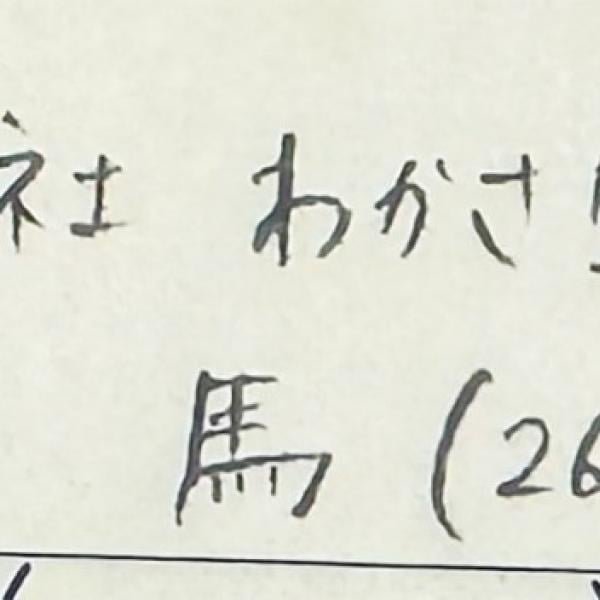 社 わかさ
馬 (26